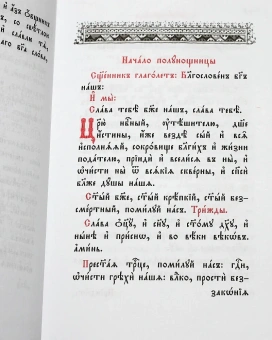 и изъ
со
и слави тѧ,
аго бг҃а слова,
Начало полꙋнощницы
Сщ҃енникъ глаголетъ: Благословенъ бг҃ъ
нашъ:
И мы:
Слава тебѣ бж҃е нашъ, слава тебѣ.
Цр҃ю нбⷭ҇ный, ᲂу҆тѣшителю, дш҃е
и҆стины, и҆же вездѣ сый и҆ всѧ
и҆сполнѧѧй, сокровище благи́хъ и҆ жизни
подателю, прїиди и҆ вселисѧ въ ны, и҆
ѡ҆чисти ны ѿ всѧкїѧ скверны, и҆ спс҃и
блаже души нашѧ.
Ст҃ый бж҃е, ст҃ый крѣпкїй, ст҃ый без-
смертный, помилꙋй насъ. Трижды.
Слава ѻ҆ц҃ꙋ̀ и҆ сн҃ꙋ, и҆ ст҃омꙋ дх҃ꙋ, и҆
ны́нѣ и҆ приснѡ, и҆ во вѣки вѣкѡвъ.
а҆минь.
Прест҃аѧ трⷪ҇це, помилꙋй насъ: гдⷭ҇и,
ѡ҆чисти грѣхѝ нашѧ: влⷣко, прости без-
законїѧ